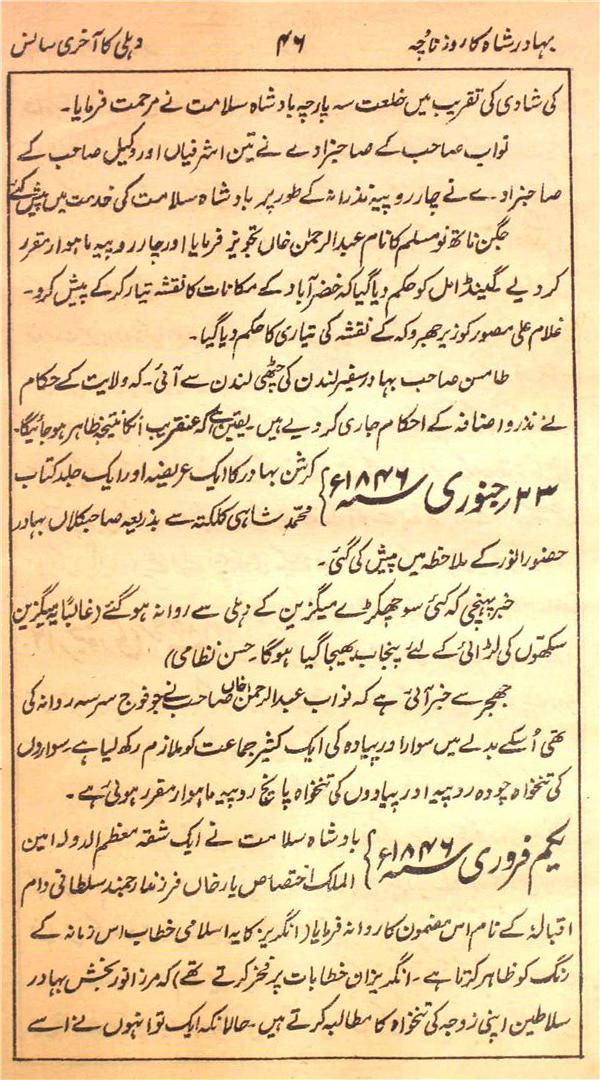 بہادر شاہ کا روزنامچہ ۴۶ دہلی کا آخری سانس
کی شادی کی تقریب میں خلعت سہ پارچہ بادشاہ سلامت نے مرحمت فرمایا۔
نواب صاحب کے صاحبزادے نے تین اشرفیاں اور وکیل صاحب کے
صاحبزادے نے چار روپیہ نذرانہ کے طور پر بادشاہ سلامت کی خدمت میں پیش کئے
جگن ناتھ نومسلم کا نام عبدالرحمٰن خاں تجویز فرمایا اور چار روپیہ ماہوار مقرر
کر دیے گینڈامل کو حکم دیا گیا کہ خضرآباد کے مکانات کا نقشہ تیار کر کے پیش کرو۔
غلام علی مصور کو زیر جھروکہ کے نقشہ کی تیاری کا حکم دیا گیا۔
طامسن صاحب بہادر سفیر لندن کی چٹھی لندن سے آئی۔ کہ ولایت کے حکام
نے نذر و اضافہ کے احکام جاری کر دیے ہیں۔ یقین ہے کہ عنقریب انکا نتیجہ ظاہر ہو جائیگا۔
۲۳ر جنوری ۱۸۴۶ء } کرشن بہادر کا ایک عریضہ اور ایک جلد کتاب
محمد شاہی کلکتہ سے بذریعہ صاحب کلاں بہادر
حضور انور کے ملاحظہ میں پیش کی گئی۔
خبر پہنچی کہ کئی سو چھکڑے میگزین کے دہلی سے روانہ ہو گئے (غالباً یہ میگزین
سکھوں کی لڑائی کے لئے پنجاب بھیجا گیا ہوگا۔ حسن نظامی)
جھجر سے خبر آئی ہے کہ نواب عبدالرحمٰن خاں صاحب نے جو فوج سرسہ روانہ کی
تھی اُسکے بدلے میں سوار اور پیادہ کی ایک کثیر جماعت کو ملازم رکھ لیا ہے سواروں
کی تنخواہ چودہ روپیہ اور پیادوں کی تنخواہ پانچ روپیہ ماہوار مقرر ہوئی ہے۔
یکم فروری ۱۸۴۶ء } بادشاہ سلامت نے ایک شقہ معظم الدولہ امین
الملک اختصاص یار خاں فرزند ارجمند سلطانی دام
اقبالہٗ کے نام اس مضمون کا روانہ فرمایا (انگریز کا یہ اسلامی خطاب اس زمانہ کے
رنگ کو ظاہر کرتا ہے۔ انگریز ان خطابات پر فخر کرتے تھے) کہ مرزا نور بخش بہادر
سلاطین اپنی زوجہ کی تنخواہ کا مطالبہ کرتے ہیں۔ حالانکہ ایک تو انہوں نے اسے